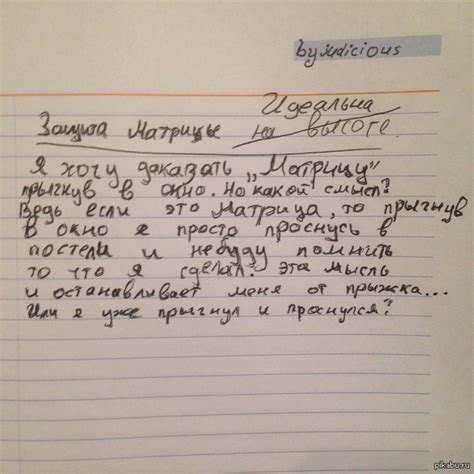 by judicious
Идеальна
Защита Матрицы на высоте.
Я хочу даказать „Матрицу"
прыгнув в окно. Но какой смысл?
Ведь если это Матрица, то прыгнув
в окно я просто проснусь в
постели и небуду помнить
то что я сделал. Эта мысль
и останавливает меня от прыжка...
Или я уже прыгнул и проснулся?
pikabu.ru